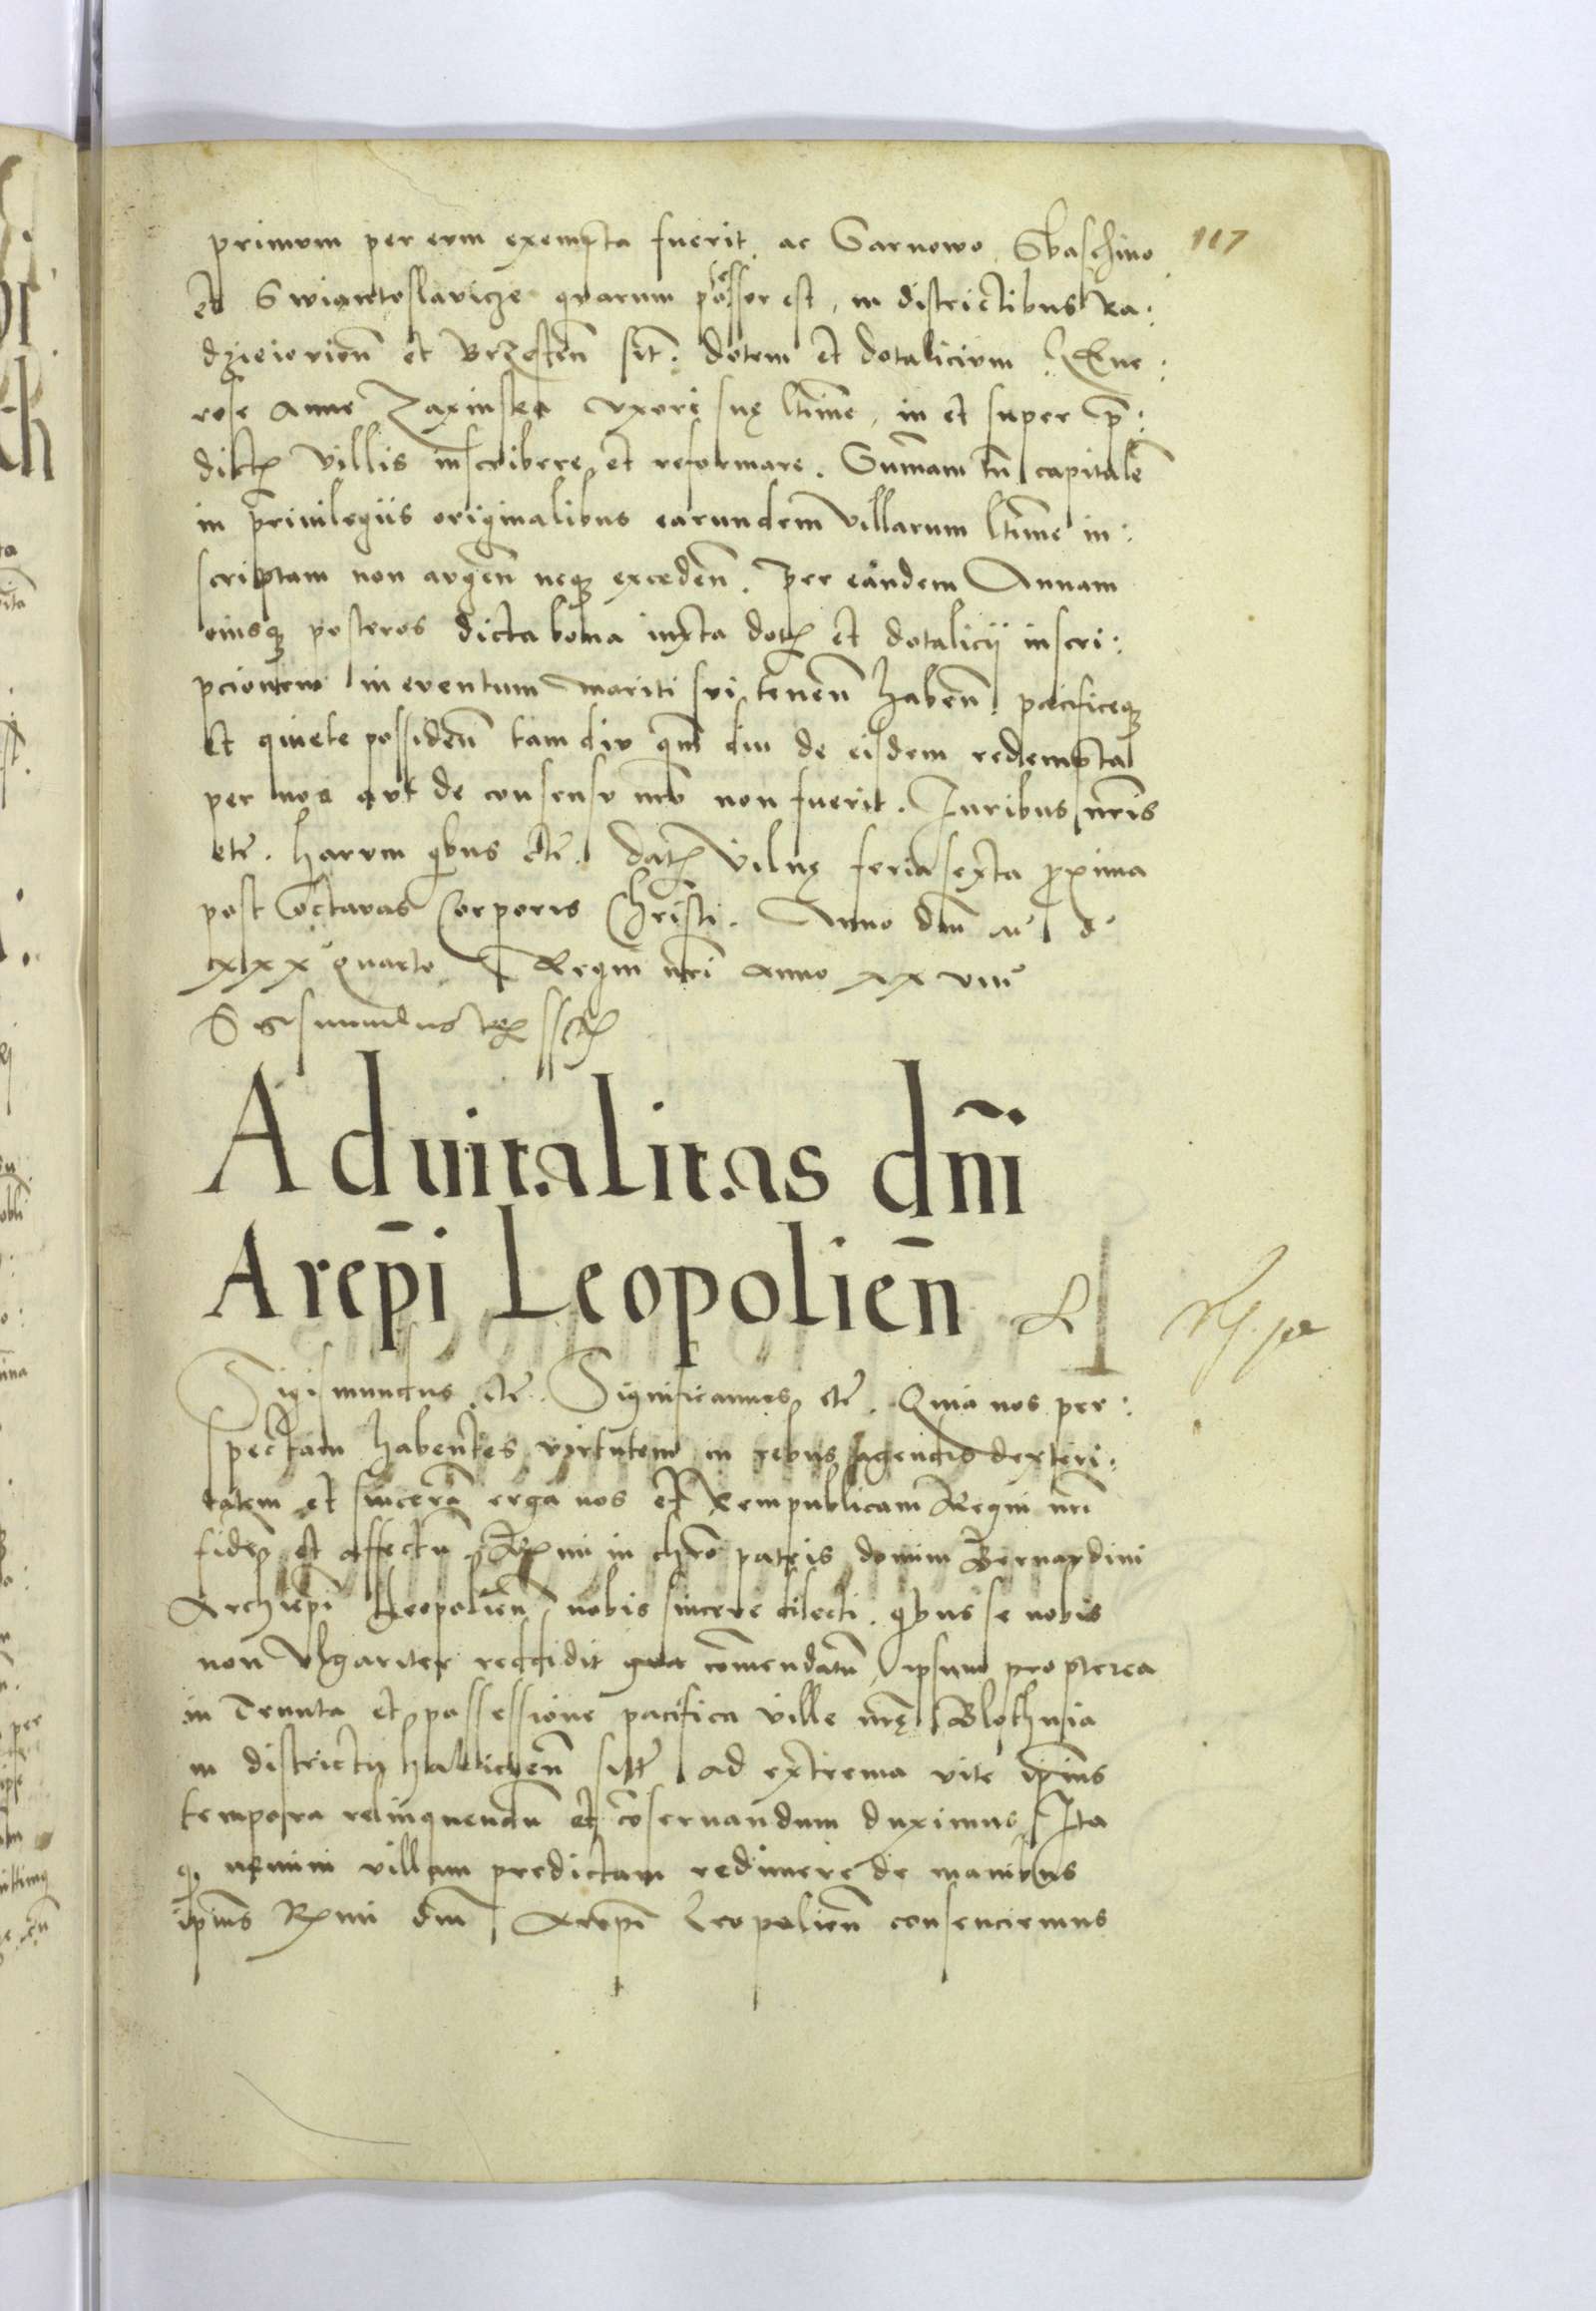 primum per eum exempta fuerit, ac Sarnowo, Sbaschino 117
et Swiantoslavicze quarum possessor est, in districtibus Ra:
dzieiovien̄ et Brzesten̄ sit̄. dotem et dotalicium Gene:
rose Anne Zaxinska uxori suę ltīme, in et super p̄:
dictis villis inscribere et reformare. Sum̄am tn̄ capitalē
in privilegiis originalibus earundem villarum ltīme in:
scriptam non augen̄ neq; exceden̄. Per eandem Annam
eiusq; posteros dicta bona iuxta dotis et dotalicii inscri:
pcionem in eventum mariti sui tenen̄ haben̄. pacificeq;
et quiete possiden̄ tam diu qm̄ diu de eisdem redempta
per nos aut de consensu nr̄o non fuerit. Iuribus nr̄is
etc̄. harum qb̄us etc̄. Dat̄ Vilnę feria sexta proxima
post octavas Corporis Christi. Anno dn̄i M° d°
xxx quarto Regni nr̄i anno xxviii°
Sigismundus rex sst̄
Advitalitas dn̄i
Arep̄i Leopolien̄
Sigismundus etc̄. Significamus etc̄. Quia nos per:
spectam habentes virtutem in rebus agendis dexteri:
tatem et sincerā erga nos et Rempublicam Regni nr̄i
fidē et affectū Rx̄mi in chrō patris domini Bernardini
Archiep̄i Leopolien̄ nobis sincere dilecti. qb̄us se nobis
non vlgariter reddidit com̄endatū, ipsum propterea
in Tenuta et possessione pacifica ville nr̄ę Blothnia
in districtu halicien̄ sitt̄ ad extrema vite ip̄ius
tempora relinquendū et cō̄servandum duximus. Ita
q; nemini villam predictam redimere de manibus
ip̄ius Rx̄mi dn̄i Arep̄i Leopolien̄ consenciemus